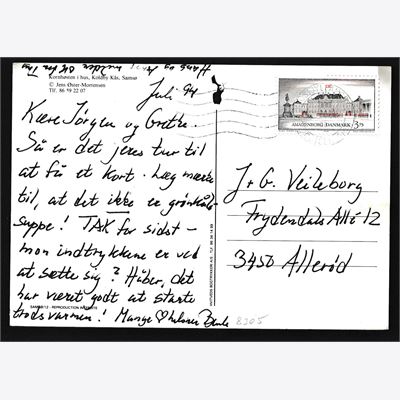 Kornhøsten i hus, Koldby Kås, Samsø
© Jens Øster-Mortensen
Tlf. 86 59 22 07
Juli 94
Kære Jørgen og Grethe.
Så er det jeres tur til
at få et kort. Læg mærke
til, at det ikke er grønkåls-
suppe! TAK for sidst –
mon indtrykkene er ved
at sætte sig? Håber, det
har været godt at starte
i hedevarmen! Mange hilsner
AMALIENBORG DANMARK 3.75
J+G. Veileborg
Frydendals Allé 12
3450 Allerød
8305